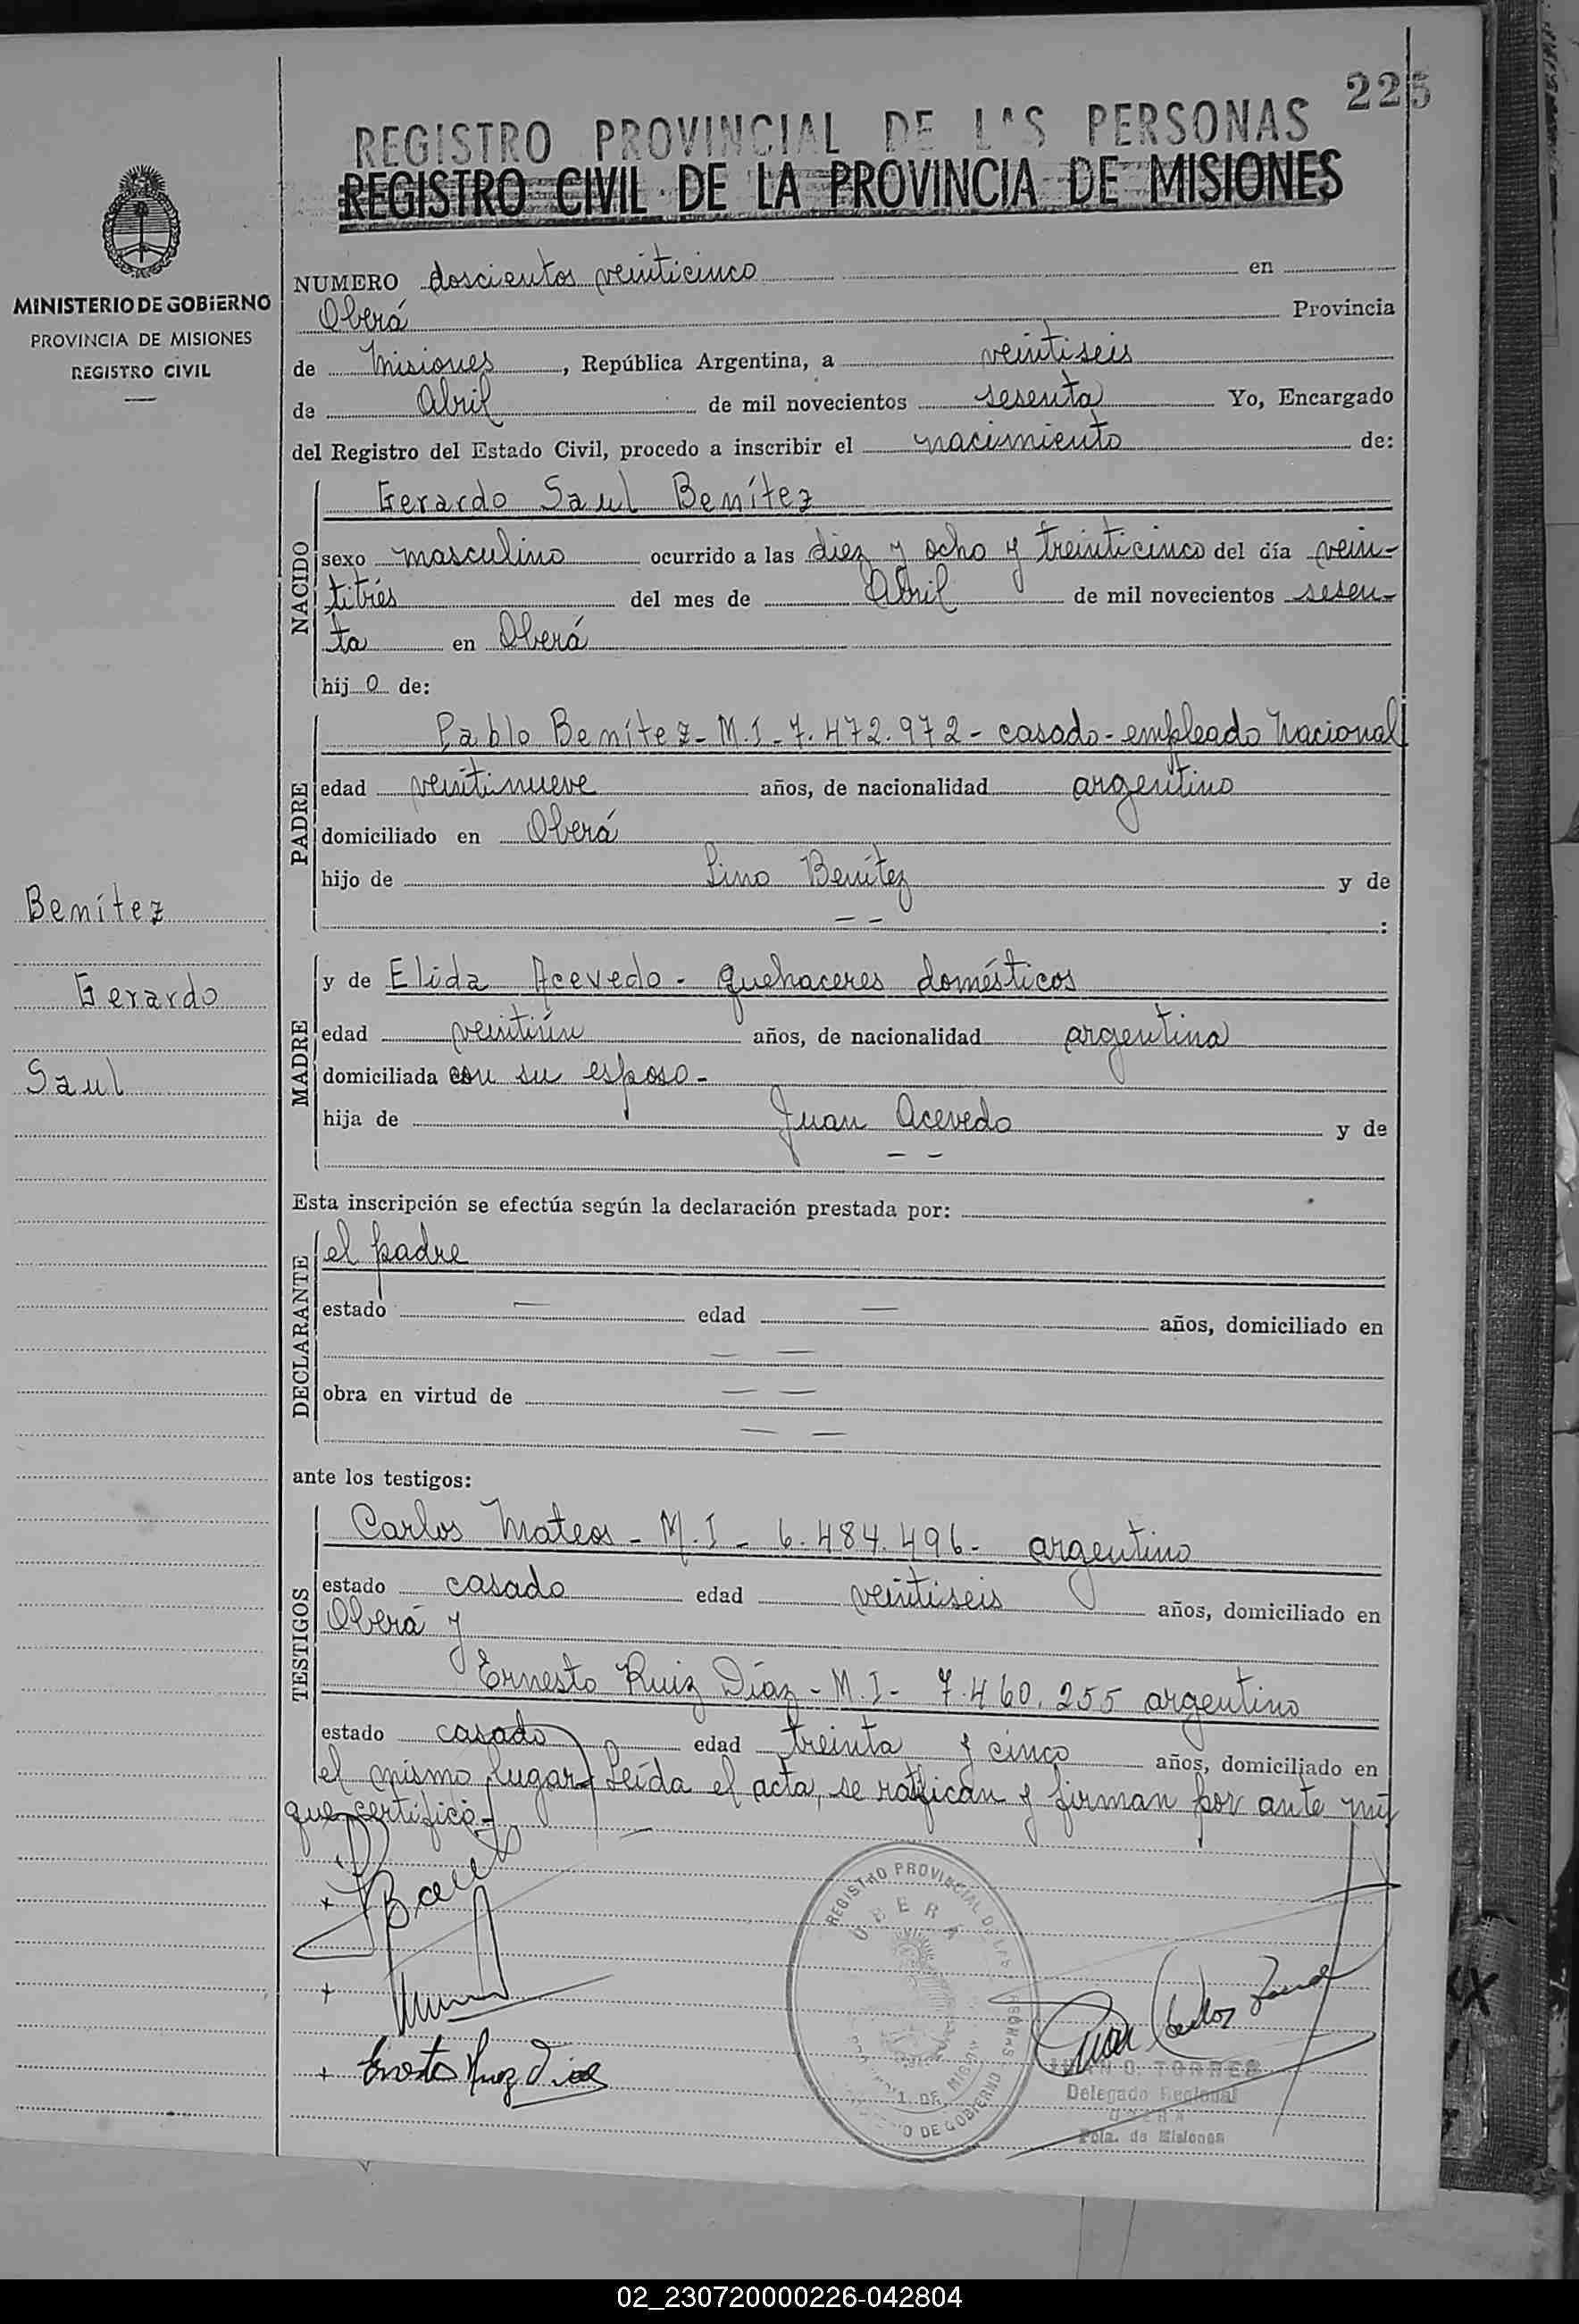 225
REGISTRO PROVINCIAL DE LAS PERSONAS
REGISTRO CIVIL DE LA PROVINCIA DE MISIONES
MINISTERIO DE GOBIERNO
PROVINCIA DE MISIONES
REGISTRO CIVIL
NUMERO doscientos veinticinco en
Oberá Provincia
de Misiones, República Argentina, a veintiseis
de Abril de mil novecientos sesenta Yo, Encargado
del Registro del Estado Civil, procedo a inscribir el nacimiento de:
NACIDO
Gerardo Saul Benítez
sexo masculino ocurrido a las diez y ocho y treinticinco del día vein-
titrés del mes de Abril de mil novecientos sesen-
ta en Oberá
hij o de:
PADRE
Pablo Benítez - M.I - 7.472.972 - casado - empleado Nacional
edad veintinueve años, de nacionalidad argentino
domiciliado en Oberá
hijo de Lino Benítez y de
— — :
Benítez
Gerardo
Saul
MADRE
y de Elida Acevedo - quehaceres domésticos
edad veintiún años, de nacionalidad argentina
domiciliada con su esposo -
hija de Juan Acevedo y de
— —
Esta inscripción se efectúa según la declaración prestada por:
DECLARANTE
el padre
estado — edad — años, domiciliado en
— —
obra en virtud de — —
— —
ante los testigos:
TESTIGOS
Carlos Mateos - M.I - 6.484.496 - argentino
estado casado edad veintiseis años, domiciliado en
Oberá y
Ernesto Ruiz Díaz - M.I - 7.460.255 argentino
estado casado edad treinta y cinco años, domiciliado en
el mismo lugar. Leída el acta, se ratifican y firman por ante mí
que certifico -
REGISTRO PROVINCIAL DE LAS PERSONAS
OBERA
Ernesto Ruiz Diaz
Juan Carlos
JUAN C. TORRES
Delegado Regional
OBERA
Pcia. de Misiones
02_230720000226-042804